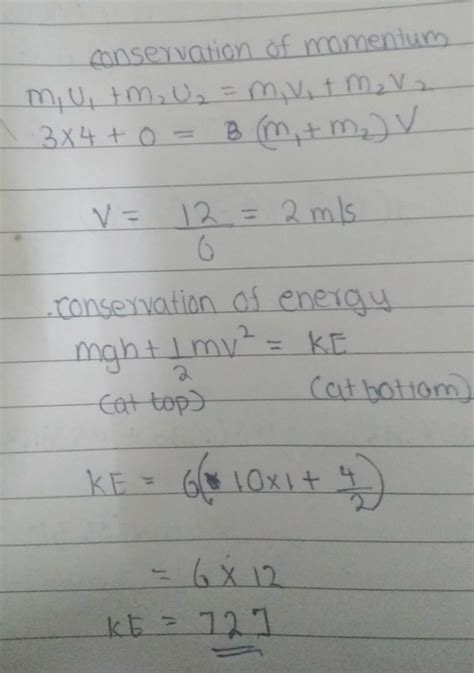 conservation of momentum
m₁u₁ + m₂u₂ = m₁v₁ + m₂v₂
3×4 + 0 = (m₁+m₂)V
V = 12/6 = 2 m/s
.conservation of energy
mgh + 1/2 mv² = KE
(at top) (at bottom)
KE = 6(10×1 + 4/2)
= 6 × 12
KE = 72J